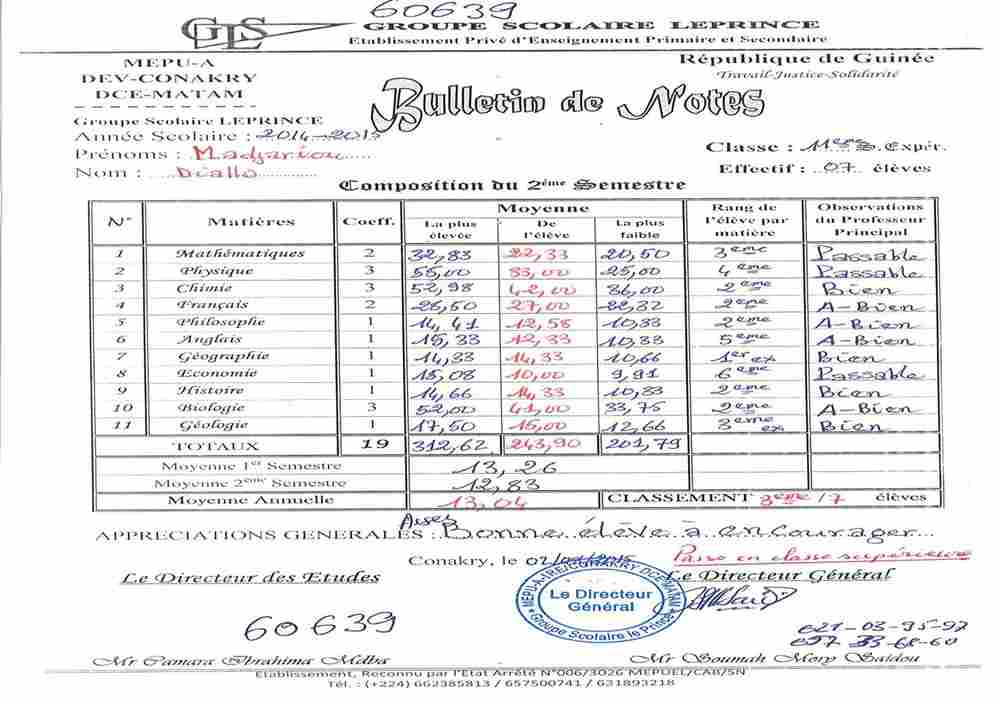 60639
GLS GROUPE SCOLAIRE LEPRINCE
Etablissement Privé d'Enseignement Primaire et Secondaire
MEPU-A République de Guinée
DEV-CONAKRY Travail-Justice-Solidarité
DCE-MATAM
Bulletin de Notes
Groupe Scolaire LEPRINCE
Année Scolaire : 2014-2015
Prénoms : Madjariou Classe : 11ère S.Expér.
Nom : Diallo Effectif : 07 élèves
Composition du 2ème Semestre
N° Matières Coeff. Moyenne Rang de l'élève par matière Observations du Professeur Principal
La plus élevée De l'élève La plus faible
1 Mathématiques 2 32,83 22,33 20,50 3ème Passable
2 Physique 3 55,00 33,00 25,00 4ème Passable
3 Chimie 3 52,98 42,00 36,00 2ème Bien
4 Français 2 28,50 27,00 22,32 2ème A-Bien
5 Philosophe 1 14,41 12,58 10,33 2ème A-Bien
6 Anglais 1 15,33 12,33 10,33 5ème A-Bien
7 Géographie 1 14,33 14,33 10,66 1er ex Bien
8 Economie 1 15,08 10,00 9,91 6ème Passable
9 Histoire 1 14,66 14,33 10,83 2ème Bien
10 Biologie 3 52,00 41,00 33,75 2ème A-Bien
11 Géologie 1 17,50 15,00 12,66 3ème ex Bien
TOTAUX 19 312,62 243,90 201,79
Moyenne 1er Semestre 13,26
Moyenne 2ème Semestre 12,83
Moyenne Annuelle 13,04 CLASSEMENT 3ème /7 élèves
APPRECIATIONS GENERALES : Assez Bonne élève à encourager
Conakry, le 02/ /2015 Passe en classe supérieure
Le Directeur des Etudes Le Directeur Général
MEPU-A-IRE-CONAKRY DCE-MATAM
Le Directeur
Général
Groupe Scolaire le Prince
60639
621-03-95-97
657 33-68-60
Mr Camara Ibrahima Mdba Mr Soumah Mory Saidou
Etablissement, Reconnu par l'Etat Arrêté N°006/3026 MEPUEL/CAB/SN
Tél. : (+224) 662385813 / 657500741 / 631893218